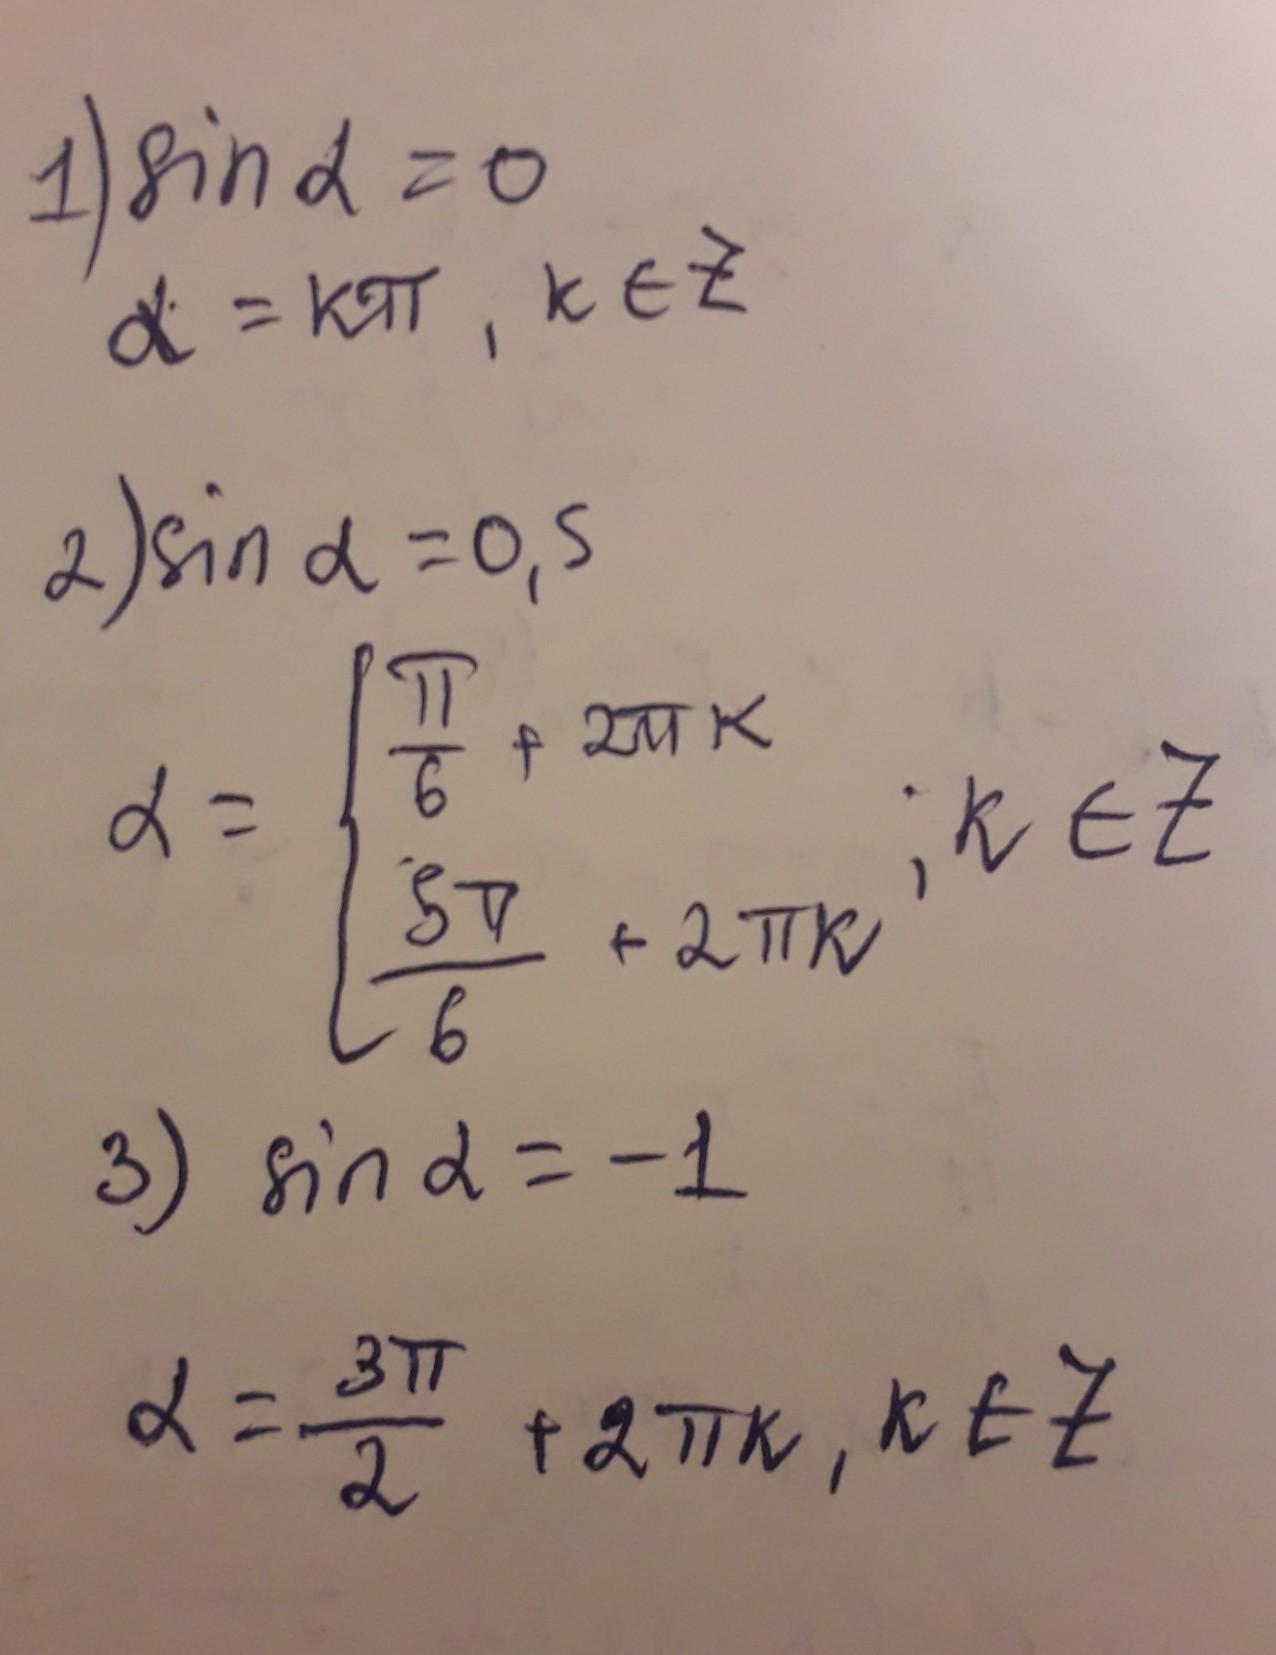 1) sin α = 0
α = kπ, k ∈ Z
2) sin α = 0,5
α = { π/6 + 2πk
5π/6 + 2πk ; k ∈ Z
3) sin α = -1
α = 3π/2 + 2πk, k ∈ Z